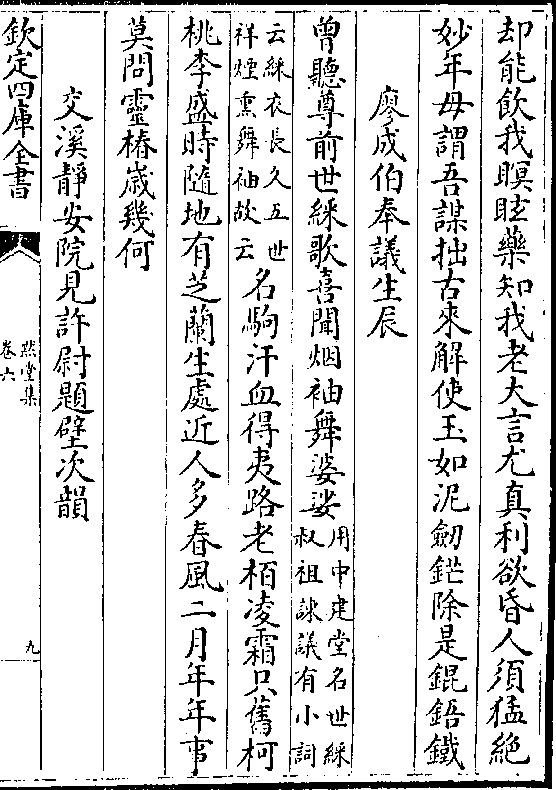 却能飲我瞑眩藥知我老大言尤真利欲昏人須猛絶
妙年毋謂吾謀拙古來解使玉如泥劒鋩除是錕鋙鐵
廖成伯奉議生辰
曾聽尊前世綵歌喜聞烟袖舞婆娑用中建堂名世綵叔祖諫議有小詞
云綵衣長久五世祥煙熏舞袖故云名駒汗血得夷路老栢凌霜只舊柯
桃李盛時隨地有芝蘭生處近人多春風二月年年事
莫問靈椿歳幾何
交溪靜安院見許尉題壁次韻
欽定四庫全書
㸃堂集
卷六
九